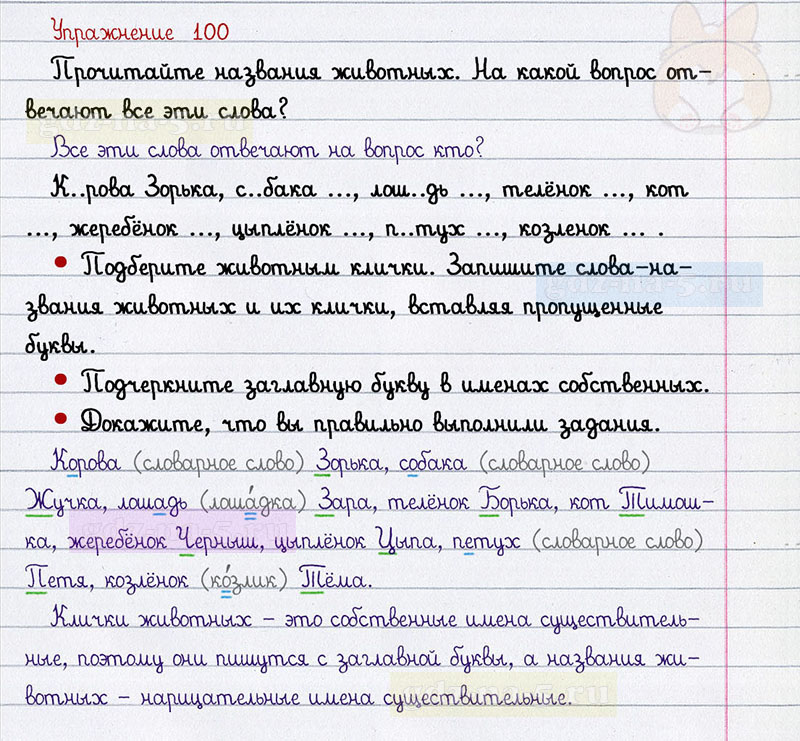 Упражнение 100
Прочитайте названия животных. На какой вопрос от-
вечают все эти слова?
Все эти слова отвечают на вопрос кто?
К..рова Зорька, с..бака ..., лош..дь ..., телёнок ..., кот
..., жеребёнок ..., цыплёнок ..., п..тух ..., козленок ... .
• Подберите животным клички. Запишите слова-на-
звания животных и их клички, вставляя пропущенные
буквы.
• Подчеркните заглавную букву в именах собственных.
• Докажите, что вы правильно выполнили задания.
Корова (словарное слово) Зорька, собака (словарное слово)
Жучка, лошадь (лоша́дка) Зара, телёнок Борька, кот Тимош-
ка, жеребёнок Черныш, цыплёнок Цыпа, петух (словарное слово)
Петя, козлёнок (ко́злик) Тёма.
Клички животных – это собственные имена существитель-
ные, поэтому они пишутся с заглавной буквы, а названия жи-
вотных – нарицательные имена существительные.